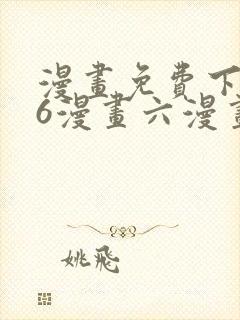 漫畫免費下
6漫畫六漫畫
姚飛